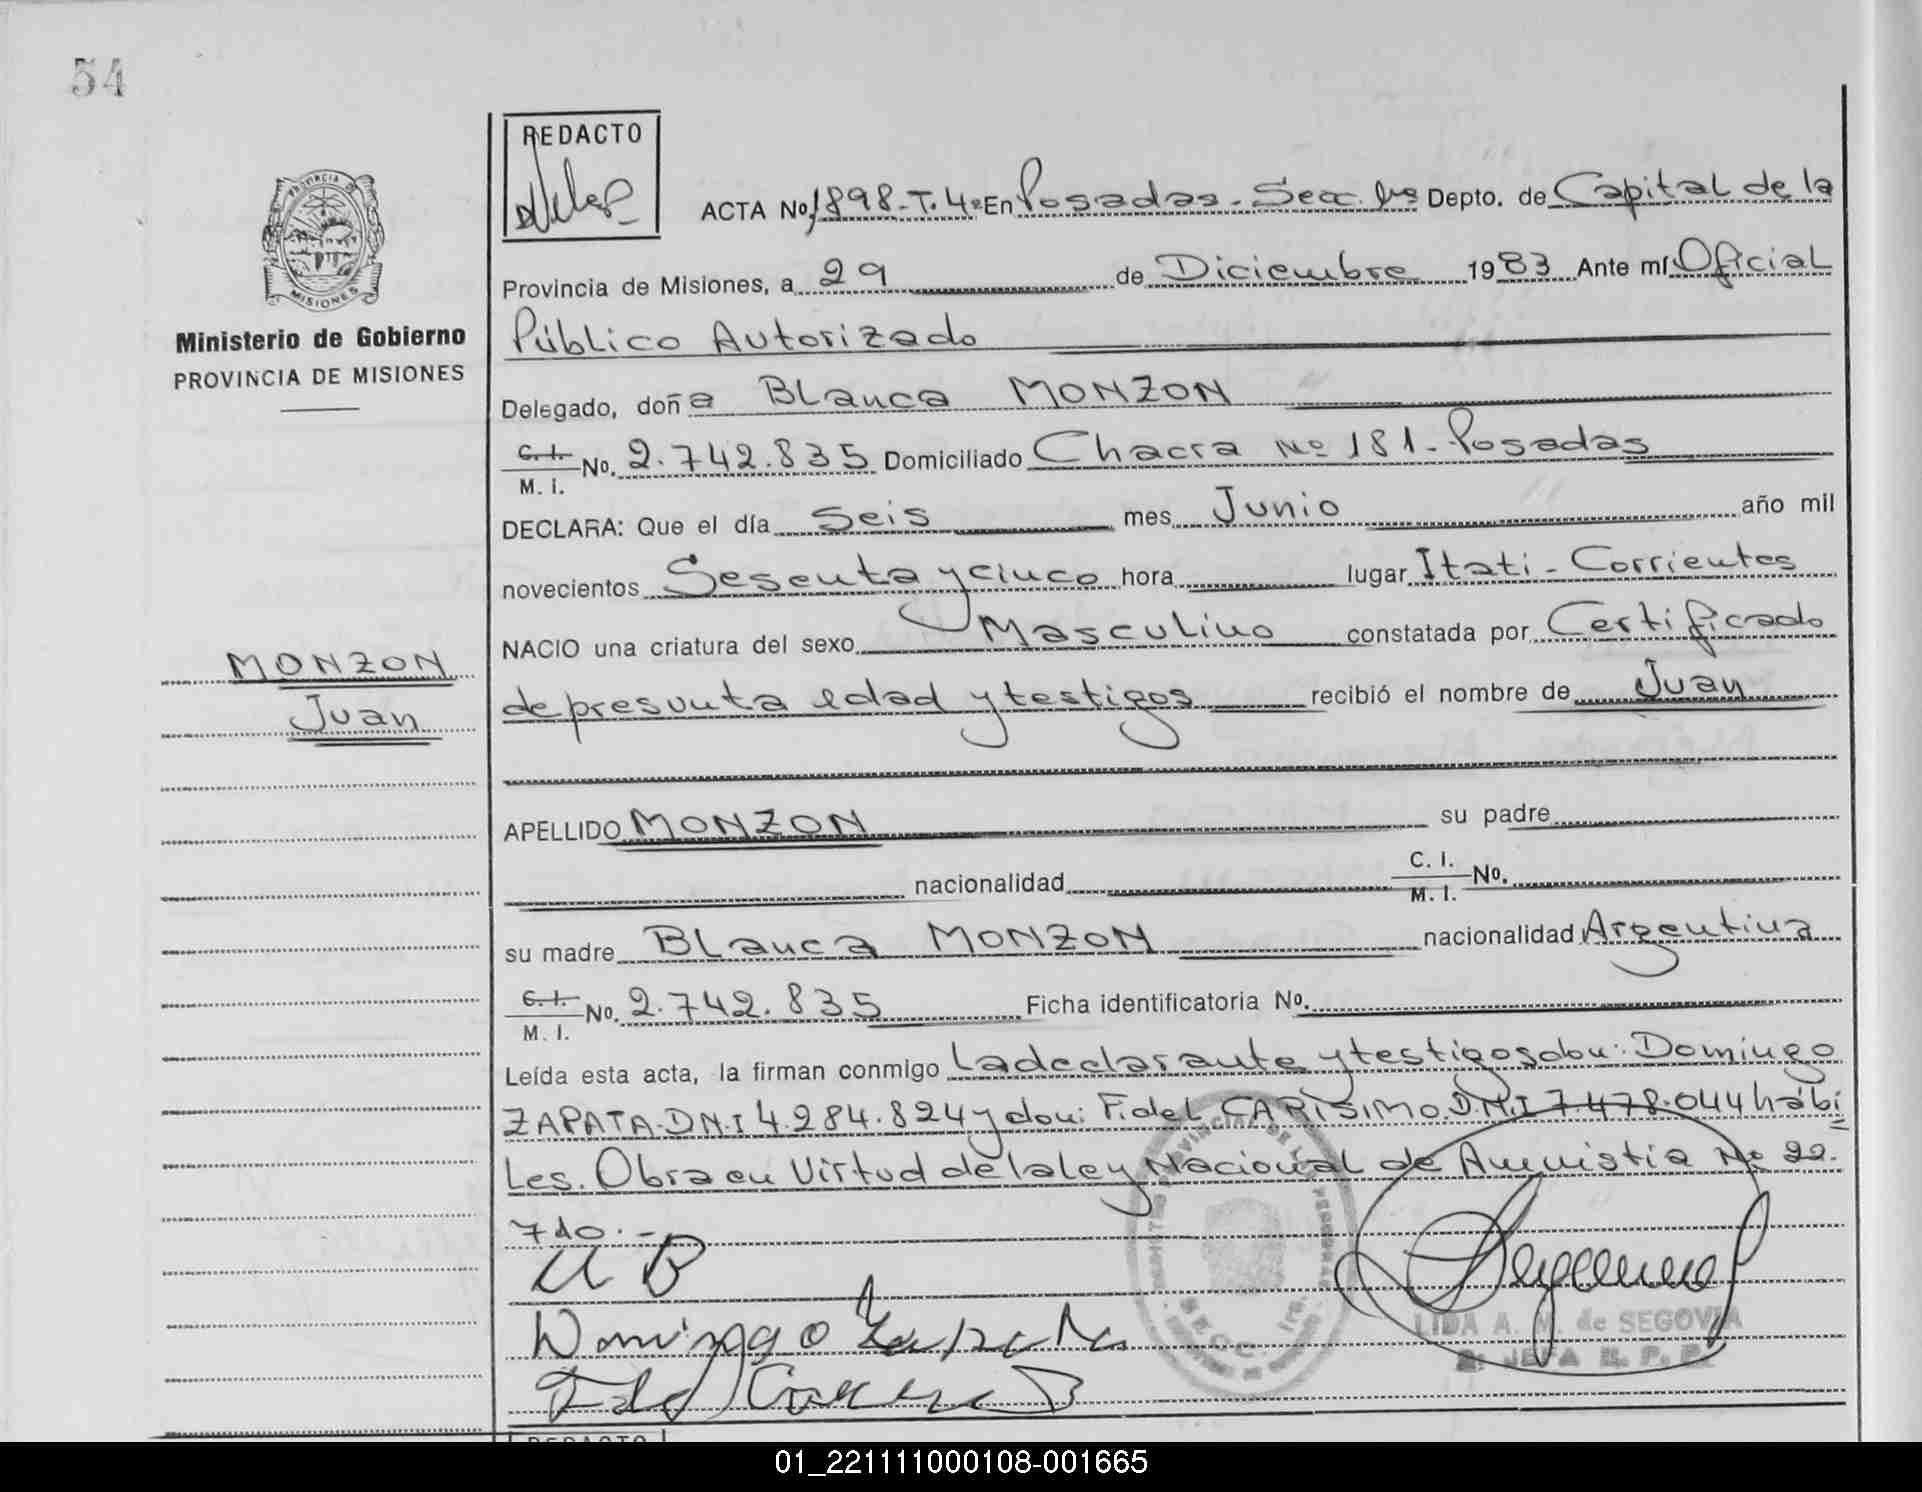 54
REDACTO
ACTA No. 1898-T.4º En Posadas - Secc. 1ra Depto. de Capital de la
Provincia de Misiones, a 29 de Diciembre 1983 Ante mí Oficial
Público Autorizado
Delegado, doña Blanca MONZON
C. I.
M. I. No. 2.742.835 Domiciliado Chacra Nº 181 - Posadas
DECLARA: Que el día Seis mes Junio año mil
novecientos Sesenta y cinco hora lugar Itati - Corrientes
NACIO una criatura del sexo Masculino constatada por Certificado
de presunta edad y testigos recibió el nombre de Juan
APELLIDO MONZON su padre
nacionalidad C. I.
M. I. No.
su madre Blanca MONZON nacionalidad Argentina
C. I.
M. I. No. 2.742.835 Ficha identificatoria No.
Leída esta acta, la firman conmigo La declarante y testigos don: Domingo
ZAPATA. D.N.I 4.284.824 y don: Fidel CARISIMO. D.N.I 7.478.044 hábi
Les. Obra en Virtud de la ley Nacional de Amnistia Nº 22.
710.-
Domingo Zapata
LIDA A. M. de SEGOVIA
2: JEFA R. P. P.
SECC. 1ra.
PROVINCIA DE
MISIONES
Ministerio de Gobierno
PROVINCIA DE MISIONES
MONZON
Juan
REDACTO
01_221111000108-001665